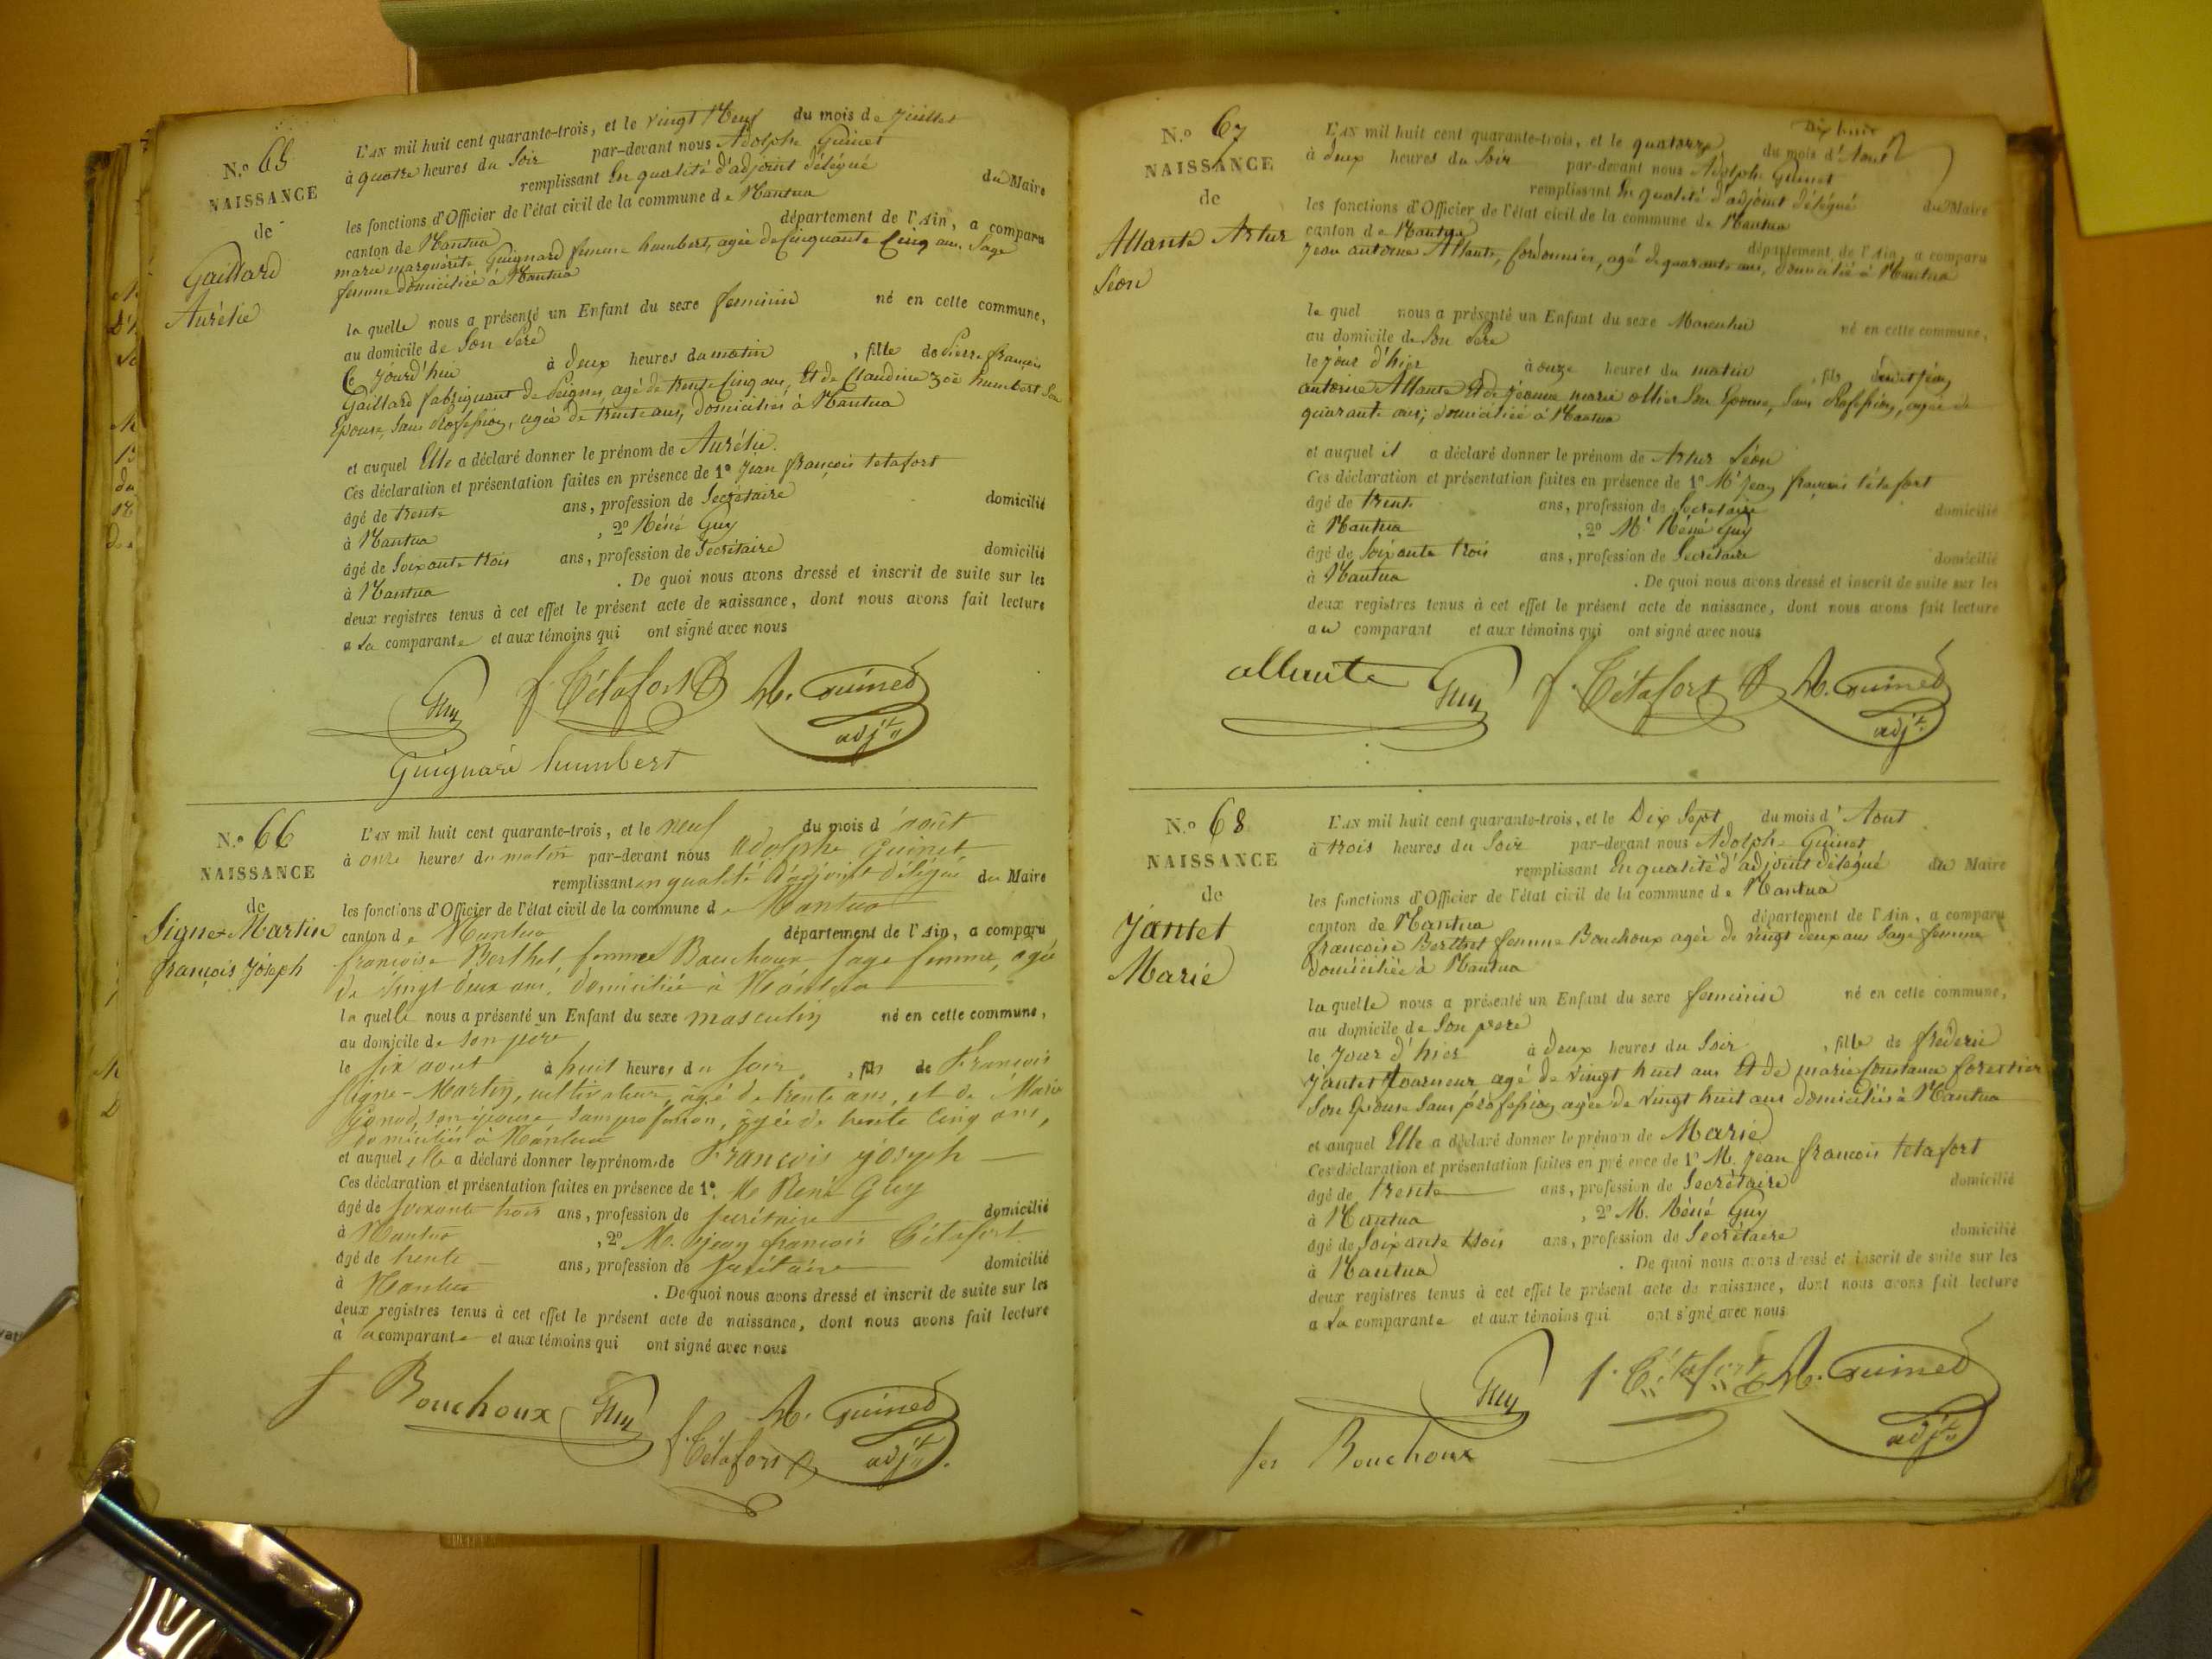 N.º 65
NAISSANCE
de
Gaillard
Aurélie
L'AN mil huit cent quarante-trois, et le vingt Neuf du mois de Juillet
à quatre heures du Soir par-devant nous Adolphe Guinet
remplissant En qualité d'adjoint délégué du Maire
les fonctions d'Officier de l'état civil de la commune de Nantua
canton de Nantua département de l'Ain, a comparu
marie marguérite Guignard femme humbert, agée de Cinquante Cinq ans Sage
femme domiciliée à Nantua
laquelle nous a présenté un Enfant du sexe feminin né en cette commune,
au domicile de Son Père
Ce jourd'hui à deux heures du matin, fille de Pierre françois
Gaillard fabriquant de Peignes, agé de trente cinq ans, Et de Claudine Zoé humbert Son
Epouse, Sans Profession, agée de trente ans, domiciliés à Nantua
et auquel Elle a déclaré donner le prénom de Aurélie.
Ces déclaration et présentation faites en présence de 1º Jean françois tetafort
âgé de trente ans, profession de Secrétaire domicilié
à Nantua, 2º Réné Guy
âgé de Soixante trois ans, profession de Secrétaire domicilié
à Nantua. De quoi nous avons dressé et inscrit de suite sur les
deux registres tenus à cet effet le présent acte de naissance, dont nous avons fait lecture
a La comparante et aux témoins qui ont signé avec nous
Guy f. Tétafort A. Guinet
adj.t
Guignard humbert
N.º 66
NAISSANCE
de
Signe-Martin
françois Joseph
L'AN mil huit cent quarante-trois, et le neuf du mois d'août
à onze heures du matin par-devant nous Adolphe Guinet
remplissant en qualité d'adjoint délégué du Maire
les fonctions d'Officier de l'état civil de la commune de Nantua
canton de Nantua département de l'Ain, a comparu
françoise Berthet femme Bouchoux sage femme, agée
de vingt deux ans, domiciliée à Nantua
laquelle nous a présenté un Enfant du sexe masculin né en cette commune,
au domicile de son père
le six aout à huit heures du soir, fils de François
Signe-Martin, cultivateur, agé de trente ans, et de Marie
son épouse sans profession, agée de trente cinq ans,
domiciliés à Nantua
et auquel elle a déclaré donner les prénoms de François joseph
Ces déclaration et présentation faites en présence de 1º. M René Guy
âgé de soixante trois ans, profession de secrétaire domicilié
à Nantua, 2º M. jean françois Tétafort
âgé de trente ans, profession de secrétaire domicilié
à Nantua. De quoi nous avons dressé et inscrit de suite sur les
deux registres tenus à cet effet le présent acte de naissance, dont nous avons fait lecture
à la comparante et aux témoins qui ont signé avec nous
f Bouchoux Guy A. Guinet
f. Tétafort adj.t
N.º 67
NAISSANCE
de
Allante Artur
Léon
Dix huit
L'AN mil huit cent quarante-trois, et le quatorze du mois d'Aout
à deux heures du Soir par-devant nous Adolphe Guinet
remplissant En qualité d'adjoint délégué du Maire
les fonctions d'Officier de l'état civil de la commune de Nantua
canton de Nantua département de l'Ain, a comparu
Jean antoine Allante, Cordonnier, agé de quarante ans, domicilié à Nantua
lequel nous a présenté un Enfant du sexe Masculin né en cette commune,
au domicile de Son Père
le jour d'hier à onze heures du matin, fils
antoine Allante Et de Jeanne marie ollier Son Epouse, Sans Profession, agée de
quarante ans, domiciliée à Nantua
et auquel il a déclaré donner le prénom de Artur Léon
Ces déclaration et présentation faites en présence de 1º Mr Jean françois tétafort
âgé de trente ans, profession de Secrétaire domicilié
à Nantua, 2º Mr Réné Guy
âgé de Soixante trois ans, profession de Secrétaire domicilié
à Nantua. De quoi nous avons dressé et inscrit de suite sur les
deux registres tenus à cet effet le présent acte de naissance, dont nous avons fait lecture
au comparant et aux témoins qui ont signé avec nous
allante Guy f. Tétafort A. Guinet
adj.t
N.º 68
NAISSANCE
de
Jantet
Marie
L'AN mil huit cent quarante-trois, et le Dix Sept du mois d'Aout
à trois heures du Soir par-devant nous Adolphe Guinet
remplissant En qualité d'adjoint délégué du Maire
les fonctions d'Officier de l'état civil de la commune de Nantua
canton de Nantua département de l'Ain, a comparu
françoise Berthet femme Bouchoux agée de vingt deux ans Sage femme
domiciliée à Nantua
laquelle nous a présenté un Enfant du sexe feminin né en cette commune,
au domicile de Son père
le jour d'hier à deux heures du Soir, fille de fréderic
Jantet tourneur agé de vingt huit ans Et de marie Constance forestier
Son Epouse Sans profession agée de vingt huit ans domiciliés à Nantua
et auquel Elle a déclaré donner le prénom de Marie
Ces déclaration et présentation faites en présence de 1º M. Jean françois tetafort
âgé de trente ans, profession de Secrétaire domicilié
à Nantua, 2º M. Réné Guy
âgé de Soixante trois ans, profession de Secrétaire domicilié
à Nantua. De quoi nous avons dressé et inscrit de suite sur les
deux registres tenus à cet effet le présent acte de naissance, dont nous avons fait lecture
a La comparante et aux témoins qui ont signé avec nous
Guy f. Tétafort A. Guinet
adj.t
fes Bouchoux